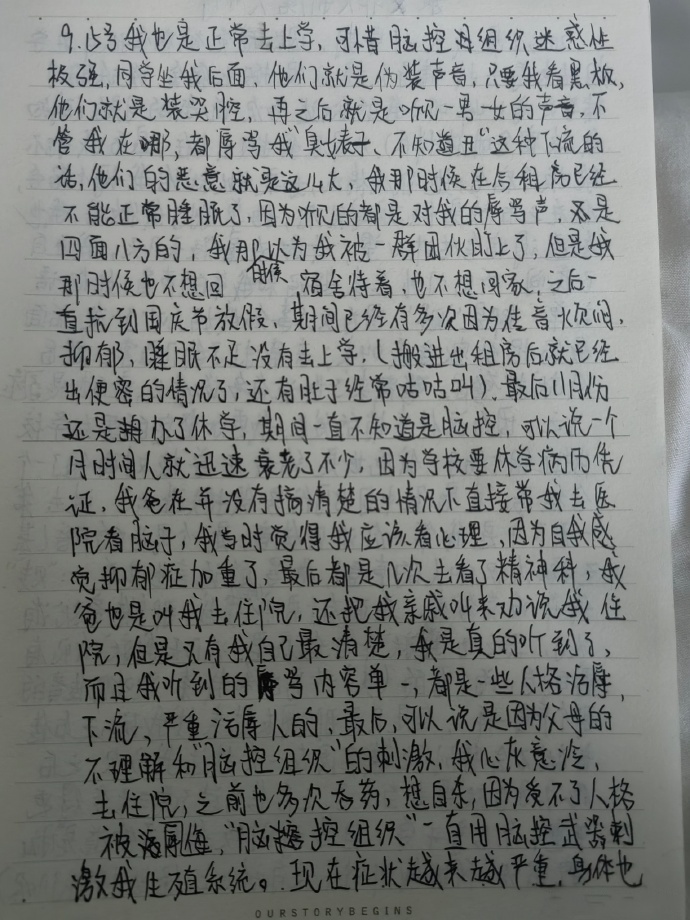 9.15号我也是正常去上学，可惜脑控组织迷惑性
极强，同学坐我后面，他们就是伪装声音，只要我看黑板，
他们就是装哭腔，再之后就是听见一男一女的声音，不
管我在哪，都辱骂我“臭婊子、不知道丑”这种下流的
话，他们的恶意就是这么大，我那时候在合租房已经
不能正常睡眠了，因为听见的都是对我的辱骂声，还是
四面八方的，我那时候以为我被一群团伙盯上了，但是我
那时候也不想回宿舍待着，也不想回家，之后一
直抗到国庆节放假，期间已经有多次因为传音烦闷，
抑郁，睡眠不足没有去上学，（搬进出租房后就已经
出便密的情况了，还有肚子经常咕咕叫）.最后11月份
还是办了休学，期间一直不知道是脑控，可以说一个
月时间人就迅速衰老了不少，因为学校要休学病历凭
证，我爸在并没有搞清楚的情况下直接带我去医
院看脑子，我当时觉得我应该看心理，因为自我感
觉抑郁症加重了，最后都是几次去看了精神科，我
爸也是叫我去住院，还把我亲戚叫来劝说我住
院，但是只有我自己最清楚，我是真的听到了，
而且我听到的辱骂内容单一，都是一些人格污辱，
下流，严重污辱人的，最后，可以说是因为父母的
不理解和“脑控组织”的刺激，我心灰意冷，
去住院，之前也多次吞药，想自杀，因为受不了人格
被侮，“脑控组织”一直用脑控武器刺
激我生殖系统。现在症状越来越严重，身体也
OURSTORYBEGINS